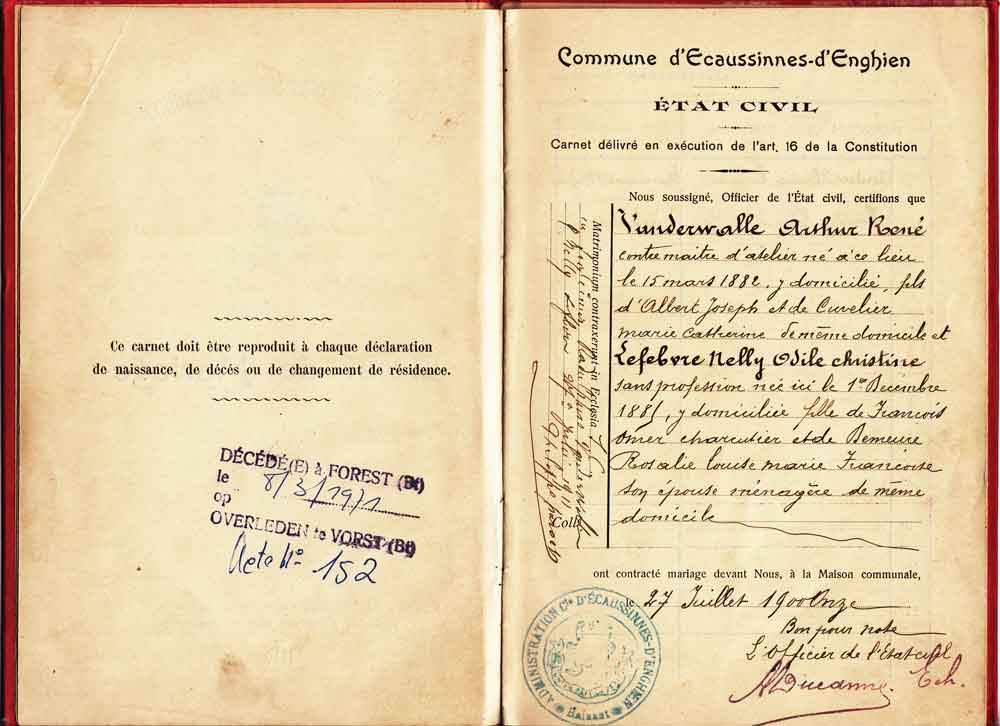 Ce carnet doit être reproduit à chaque déclaration
de naissance, de décés ou de changement de résidence.
DÉCÉDÉ(E) à FOREST (Bt)
le 8/3/1971
op
OVERLEDEN te VORST (Bt)
Acte N° 152
Commune d'Ecaussinnes-d'Enghien
ÉTAT CIVIL
Carnet délivré en exécution de l'art. 16 de la Constitution
Nous soussigné, Officier de l'État civil, certifions que
Vanderwalle Arthur René
contremaitre d'atelier né à ce lieu
le 15 mars 1882, y domicilié, fils
d'Albert Joseph et de Cuvelier
marie Catherine de même domicile et
Lefebvre Nelly Odile Christine
sans profession née ici le 1er Décembre
1881, y domiciliée fille de Francois
Omer charcutier et de Demeure
Rosalie Louise Marie Francoise
son épouse ménagère de même
domicile
ont contracté mariage devant Nous, à la Maison communale,
le 27 Juillet 1900 Onze
Bon pour note
L'Officier de l'Etat civil
Matrimonium contraxerunt in Ecclesia
Nelly
Coll.
ADMINISTRATION Cle D'ÉCAUSSINNES-D'ENGHIEN
Hainaut